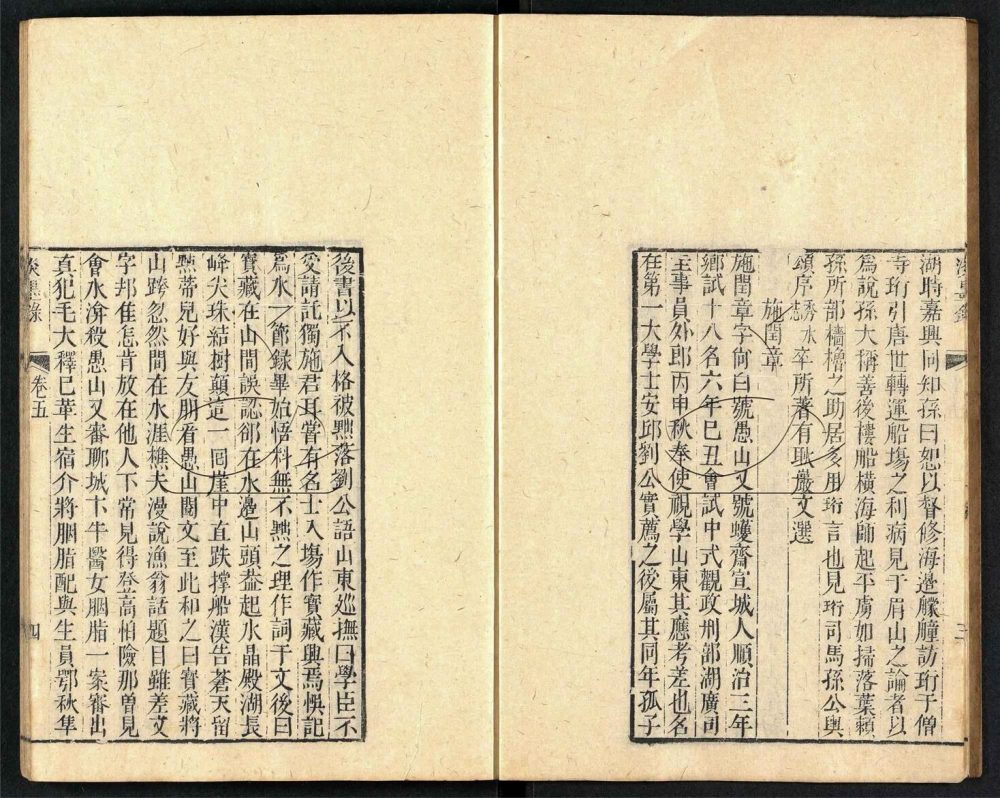 湖時嘉興同知孫曰恕以督修海邊艨艟訪珩于僧
寺珩引唐世轉運船塲之利病見于眉山之論者以
爲說孫大稱善後樓船橫海師起平虜如掃落葉賴
孫所部檣櫓之助居多用珩言也見珩司馬孫公輿
頌序誘水卒所著有耻巖文選
施閏章
施閏章字尙白號愚山又號蠖齋宣城人順治三年
鄉試十八名六年巳丑會試中式觀政刑部湖廣司
主事員外郎丙申秋奉使視學山東其應考差也名
在第一大學士安邱劉公實薦之後屬其同年孤子
後書以不入格被黜落劉公語山東巡撫曰學臣不
愛請託獨施君耳嘗有名士入塲作寶藏興焉悞記
爲水一節錄畢始悟料無不黜之理作詞于文後曰
寶藏在山間誤認郤在水邊山頭葢起水晶殿湖長
峰尖珠結樹顚這一囘崖中直跌撑船漢告蒼天留
㸃蒂兒好與友朋看愚山閱文至此和之曰寶藏將
山跨忽然間在水涯樵夫漫說漁翁話題目雖差文
字却佳怎肯放在他人下常見得登高怕險那曽見
會水渰殺愚山又審聊城卞牛醫女胭脂一案審出
真犯毛大釋巳革生宿介將胭脂配與生員鄂秋隼
卷五
四